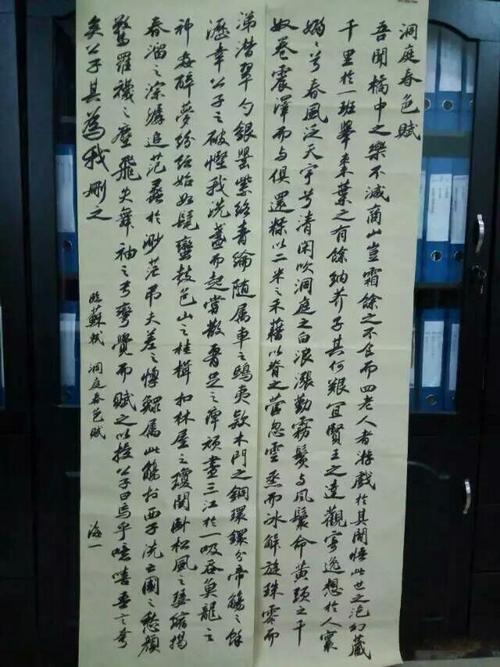 洞庭春色賦
吾聞橘中之樂不減商山豈霜餘之不食而四老人者游戲於其間悟此世之泡幻藏
千里於一班舉棗葉之有餘納芥子其何艱宜賢王之達觀寄逸想於人寰
嫋嫋兮春風泛天宇兮清閑吹洞庭之白浪漲勤霧鬢与風鬟命黃頭之千
奴卷震澤而与俱還糅以二米之禾藉以脊之菅忽雲烝而冰解旋珠零而
涕潸翠勺銀罌紫絡青綸随属車之鴟夷款木門之銅環分帝觴之餘
瀝幸公子之破慳我洗盞而起嘗散腰足之痹頑盡三江於一吸吞魚龍之
神姦醉夢紛紜始如髦蠻鼓包山之桂楫扣林屋之瓊關臥松風之瑟縮揭
春溜之淙潺追范蠡於渺茫弔夫差之惸鰥属此觴於西子洗亡國之愁顏
驚羅襪之塵飛失舞袖之弓彎覺而賦之以授公子曰烏乎噫嘻吾言夸
矣公子其為我刪之
臨蘇軾 洞庭春色賦 海一